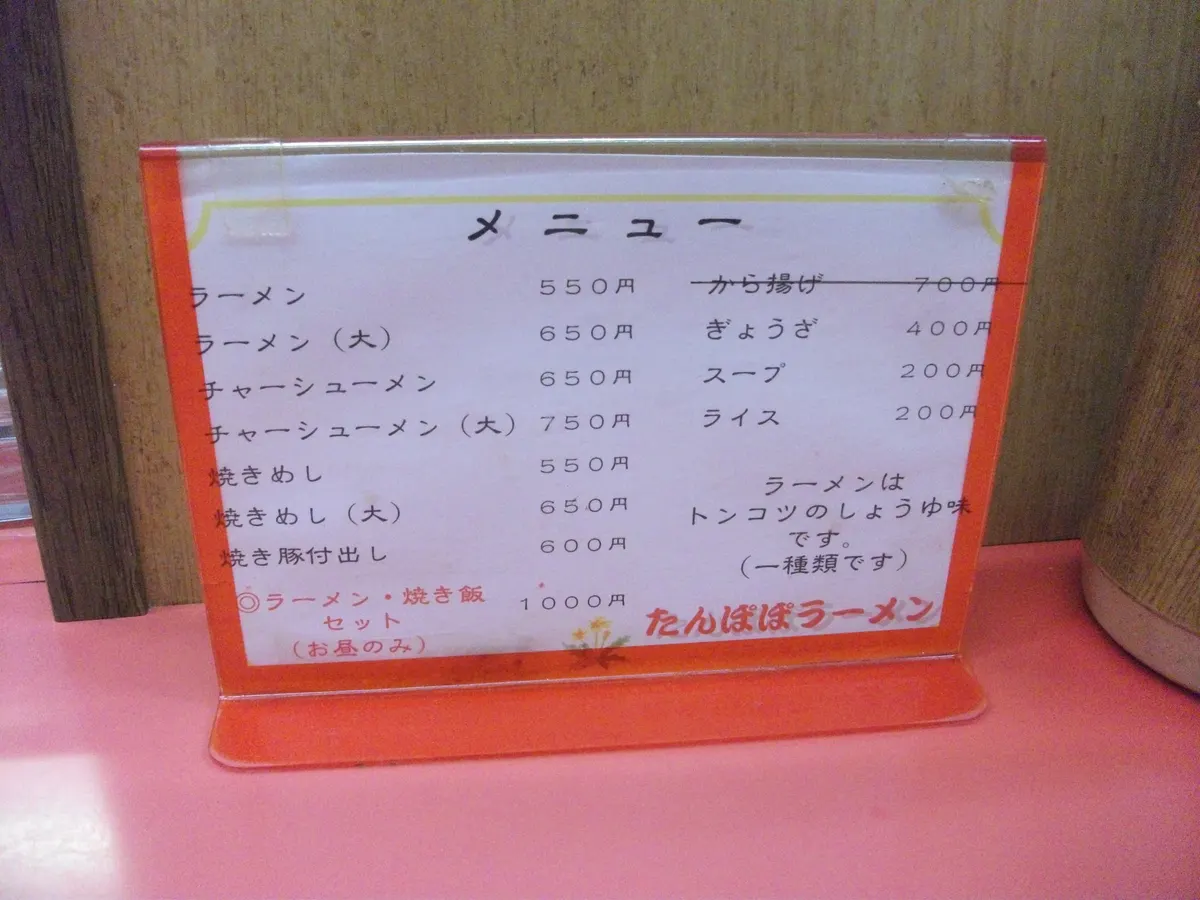 メニュー
ラーメン 550円
ラーメン（大） 650円
チャーシューメン 650円
チャーシューメン（大） 750円
焼きめし 550円
焼きめし（大） 650円
焼き豚付出し 600円
◎ラーメン・焼き飯 1000円
セット
（お昼のみ）
から揚げ 700円
ぎょうざ 400円
スープ 200円
ライス 200円
ラーメンは
トンコツのしょうゆ味
です。
（一種類です）
たんぽぽラーメン